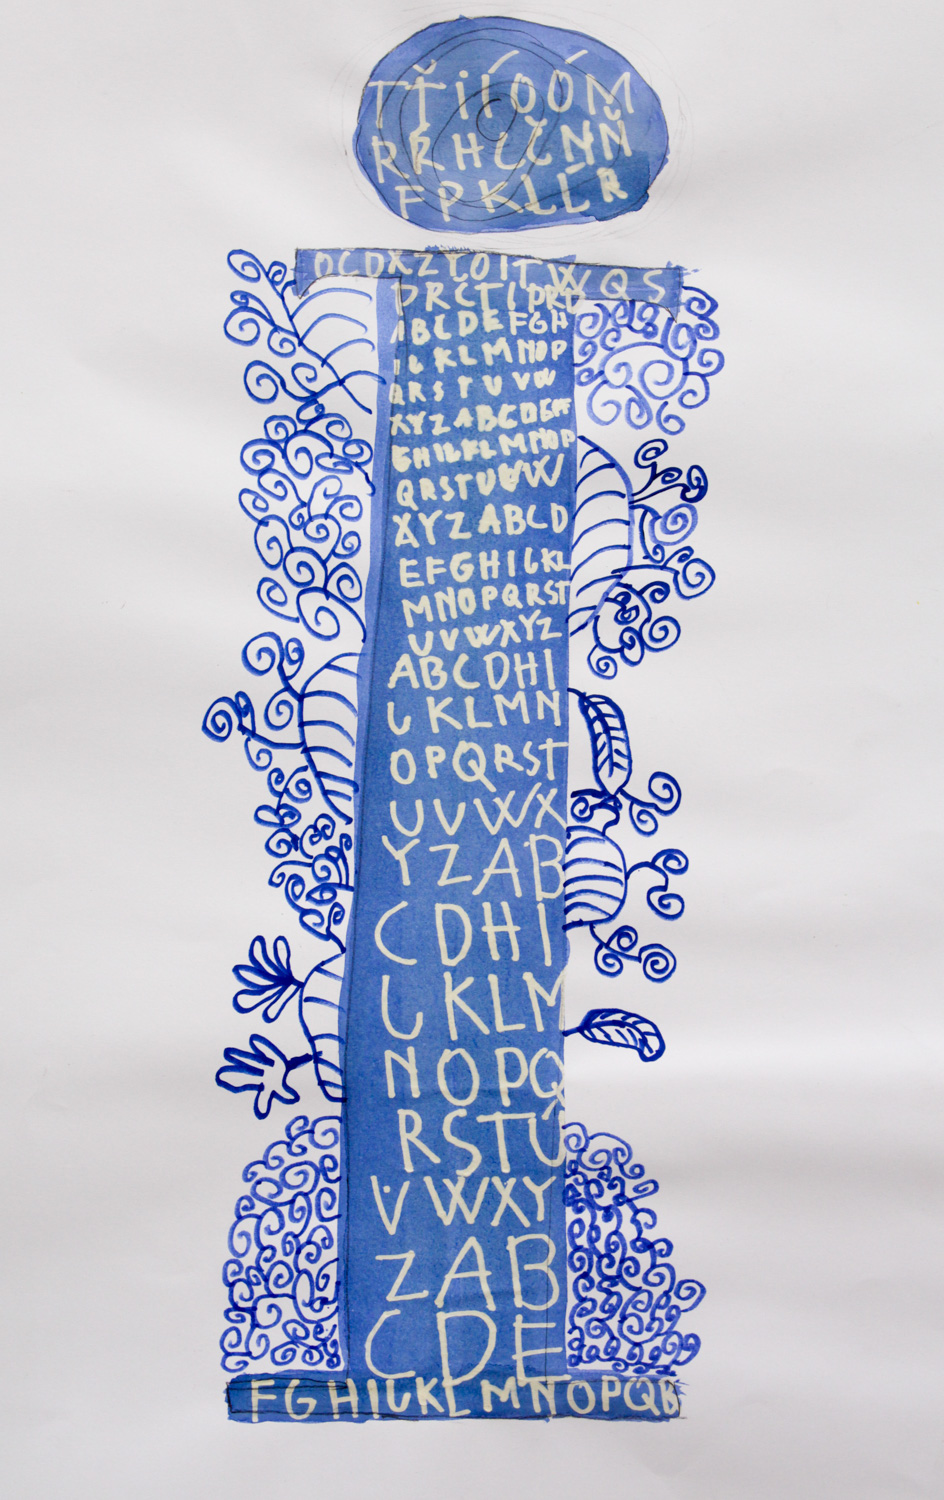 TŤiÍOÓM
RŘHCČNŇ
FPKLĹR
OCDXZYOITWQS
DRCTIPRT
ABCDEFGH
IJKLMNOP
QRSTUVW
XYZABCDEFF
GHIJKLMNOP
QRSTUVW
XYZABCD
EFGHIJKL
MNOPQRST
UVWXYZ
ABCDHI
JKLMN
OPQRST
UVWX
YZAB
CDHI
JKLM
NOPQ
RSTU
VWXY
ZAB
CDE
FGHIJKLMNOPQB